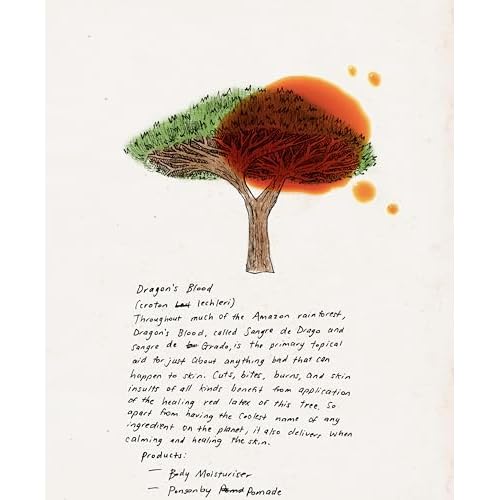 Dragon's Blood
(croton lechleri)
Throughout much of the Amazon rainforest,
Dragon's Blood, called Sangre de Drago and
Sangre de Grado, is the primary topical
aid for just about anything bad that can
happen to skin. Cuts, bites, burns, and skin
insults of all kinds benefit from application
of the healing red latex of this tree. So
apart from having the coolest name of any
ingredient on the planet, it also delivers when
calming and healing the skin.
Products:
— Body Moisturiser
— Ponsonby Pomade